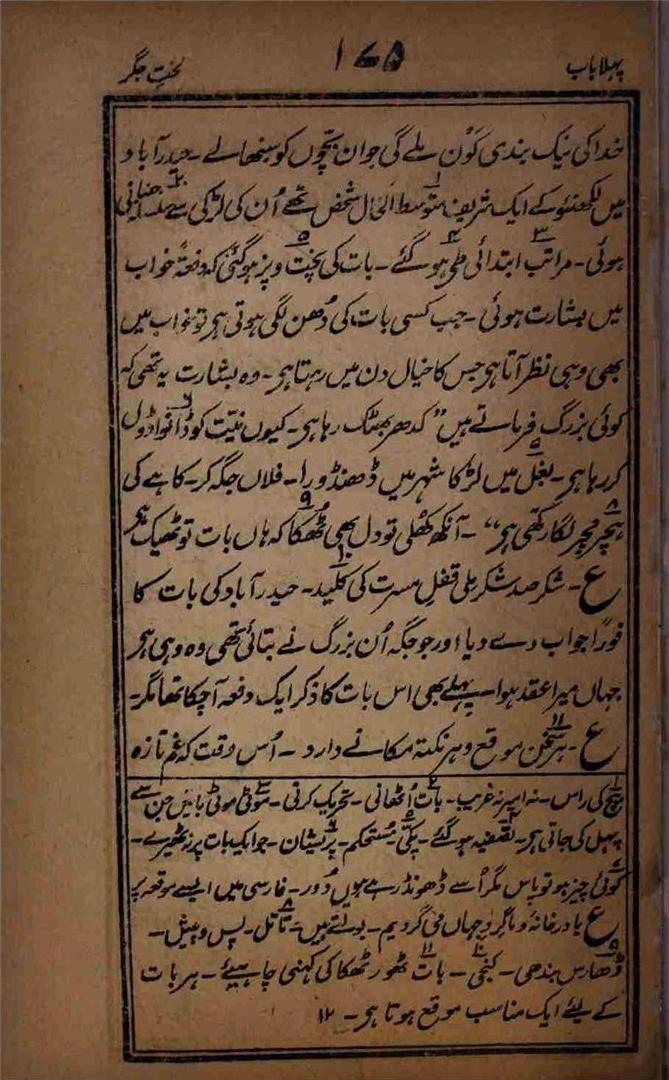 پہلا باب
۱۷۵
لخت جگر
خدا کی نیک بندی کون ملے گی جو ان بچّوں کو سنبھالے ۔ حیدر آباد
میں لکھنئو کے ایک شریف متوسط الحال شخص تھے اُن کی لڑکی سے سلسلہ جنبانی
ہوئی ۔ مراتب ابتدائی طی ہو گئے ۔ بات کی پخت و پز ہو گئی کہ دفعۃً خواب
میں بشارت ہوئی ۔ جب کسی بات کی دُھن لگی ہوتی ہو تو خواب میں
بھی وہی نظر آتا ہو جس کا خیال دن میں رہتا ہو ۔ وہ بشارت یہ تھی کہ
کوئی بزرگ فرماتے ہیں ” کدھر بھٹک رہا ہو ۔ کیوں نیّت کو ڈانوا ڈول
کر رہا ہو ۔ بغل میں لڑکا شہر میں ڈھنڈورا ۔ فلاں جگہ کر ۔ کاہے کی
ہچر مچر لگا رکھی ہو “ ۔ آنکھ کھُلی تو دل بھی ٹھُکا کہ ہاں بات تو ٹھیک ہو
ع ۔ شکر صد شکر ملی قفلِ مسرت کی کلید ۔ حیدر آباد کی بات کا
فوراً جواب دے دیا اور جو جگہ اُن بزرگ نے بتائی تھی وہ وہی ہو
جہاں میرا عقد ہوا ۔ پہلے بھی اس بات کا ذکر ایک دفعہ آچکا تھا مگر ۔
ع ۔ ہر سخن موقع و ہر نکتہ مکانے دارد ۔ اُس وقت کہ غم تازہ
بیچ کی راس ۔ نہ امیر نہ غریب ۔ بات اُٹھانی ۔ تحریک کرنی ۔ موٹی موٹی باتیں جن سے
پہل کی جاتی ہو ۔ تصفیہ ہو گئے ۔ پکّی ۔ مستحکم ۔ پریشان ۔ جو ایک بات پر نہ ٹھیرے ۔
کوئی چیز ہو تو پاس مگر اُسے ڈھونڈ رہے ہوں دُور ۔ فارسی میں ایسے موقعہ پر
ع یار در خانہ و ما گردِ جہاں می گردیم ۔ بولتے ہیں ۔ تامّل ۔ پس و پیش ۔
ڈھارس بندھی ۔ کنجی ۔ بات ٹھور ٹھکا کی کہنی چاہیئے ۔ ہر بات
کے لیئے ایک مناسب موقع ہوتا ہو ۔ ۱۲